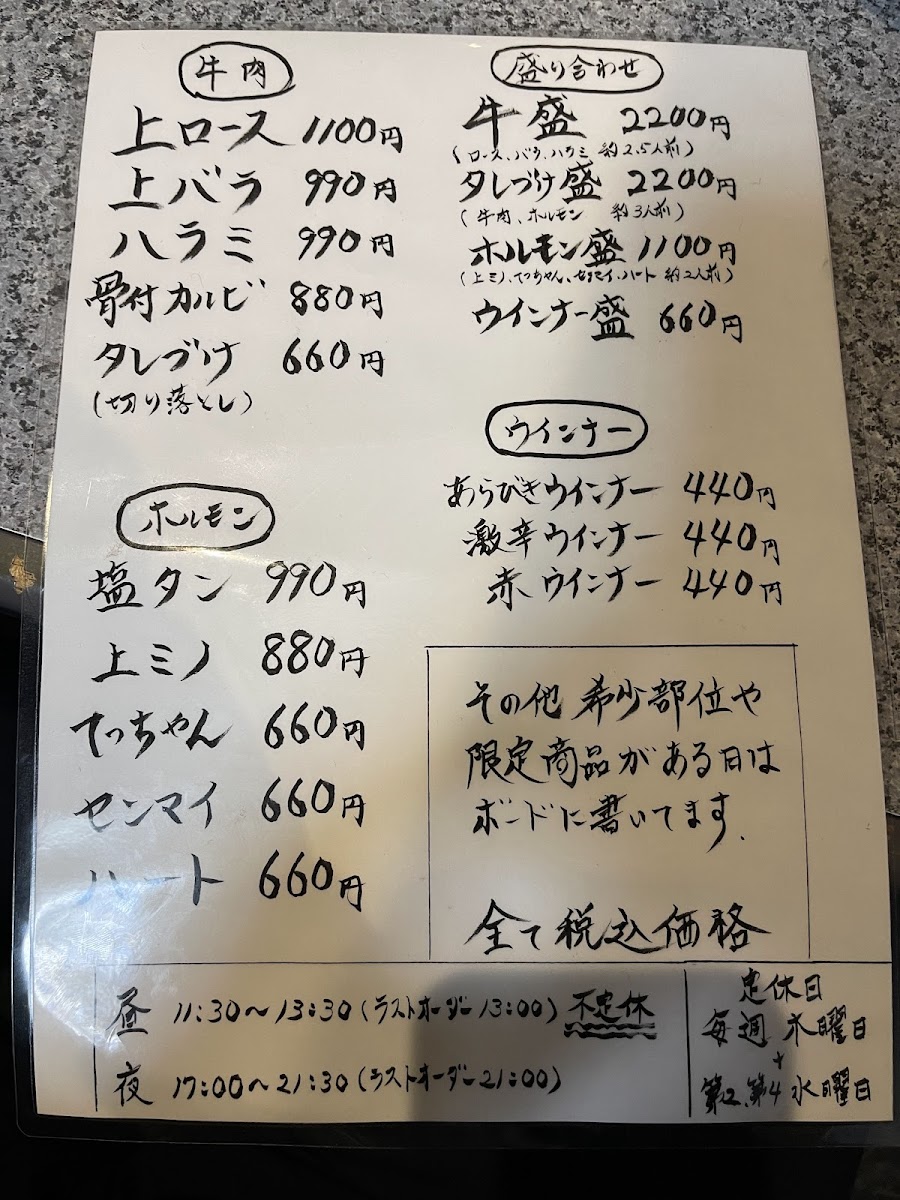 牛肉
上ロース 1100円
上バラ 990円
ハラミ 990円
骨付カルビ 880円
タレづけ 660円
(切り落とし)
ホルモン
塩タン 990円
上ミノ 880円
てっちゃん 660円
センマイ 660円
ハート 660円
盛り合わせ
牛盛 2200円
(ロース、バラ、ハラミ 約2.5人前)
タレづけ盛 2200円
(牛肉、ホルモン 約3人前)
ホルモン盛 1100円
(上ミノ、てっちゃん、センマイ、ハート 約2人前)
ウインナー盛 660円
ウインナー
あらびきウインナー 440円
激辛ウインナー 440円
赤ウインナー 440円
その他 希少部位や
限定商品がある日は
ボードに書いてます.
全て税込価格
昼 11:30〜13:30(ラストオーダー13:00) 不定休
夜 17:00〜21:30(ラストオーダー21:00)
定休日
毎週 木曜日
+
第2、第4 水曜日